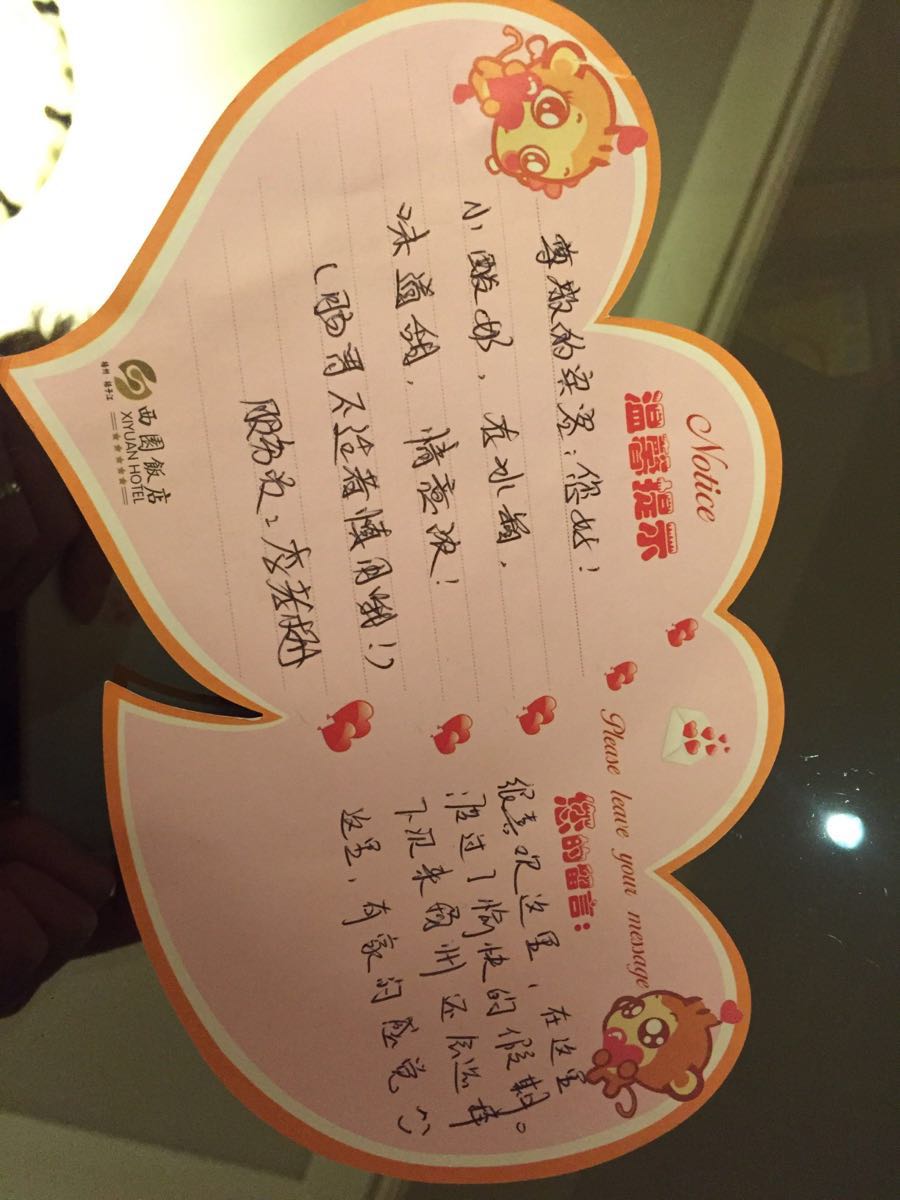 Notice
温馨提示
尊敬的梁总：您好！
小酸奶，在冰箱，
味道甜，情意浓！
（肠胃不适者慎用哦！）
服务员：李
西園飯店
XIYUAN HOTEL
扬州 扬子江
Please leave your message
您的留言：
很喜欢这里，在这里
渡过了愉快的假期。
下次来扬州还会选择
这里，有家的感觉^_^